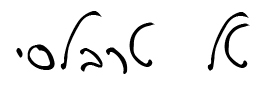 טל טרבלסי